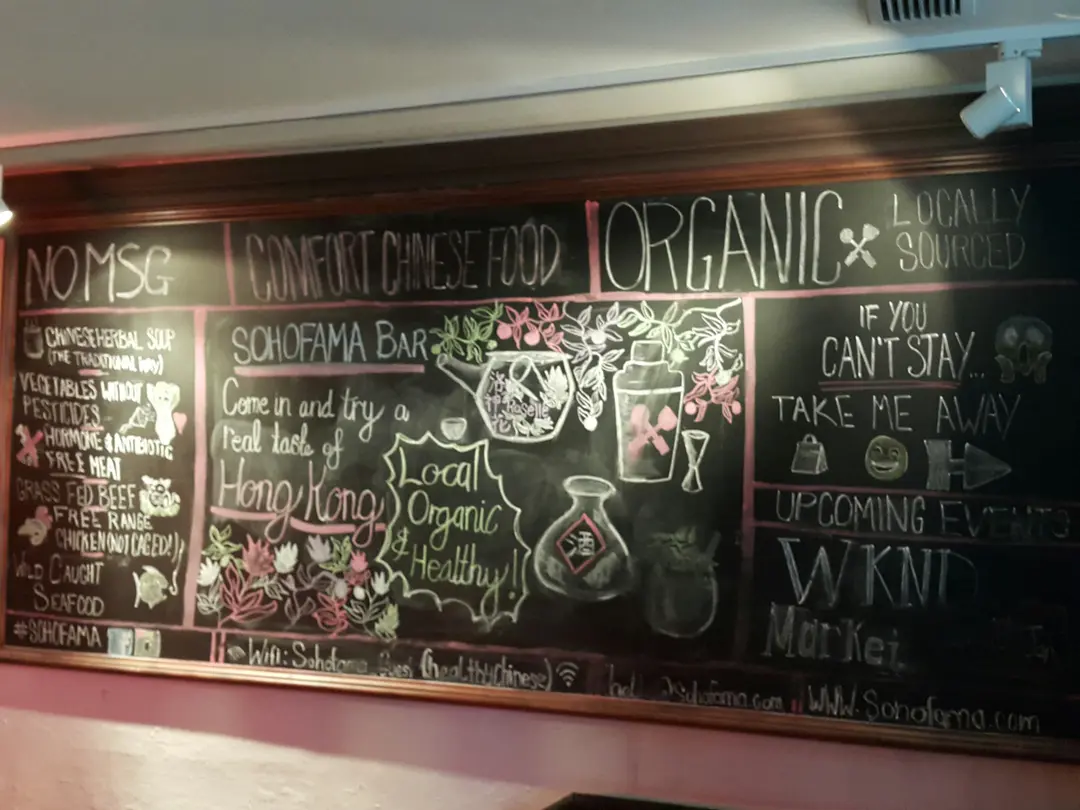 NO MSG
COMFORT CHINESE FOOD
ORGANIC
LOCALLY
SOURCED
CHINESE HERBAL SOUP
(THE TRADITIONAL WAY)
VEGETABLES WITHOUT
PESTICIDES
HORMONE & ANTIBIOTIC
FREE MEAT
GRASS FED BEEF
FREE RANGE
CHICKEN (NOT CAGED!)
WILD CAUGHT
SEAFOOD
#SOHOFAMA
SOHOFAMA BAR
Come in and try a
real taste of
Hong Kong
Roselle
Local
Organic
& Healthy!
Wifi: Sohofama Guest (healthychinese)
sohofama.com
IF YOU
CAN'T STAY...
TAKE ME AWAY
UPCOMING EVENTS
WKND
Market
WWW.Sohofama.com